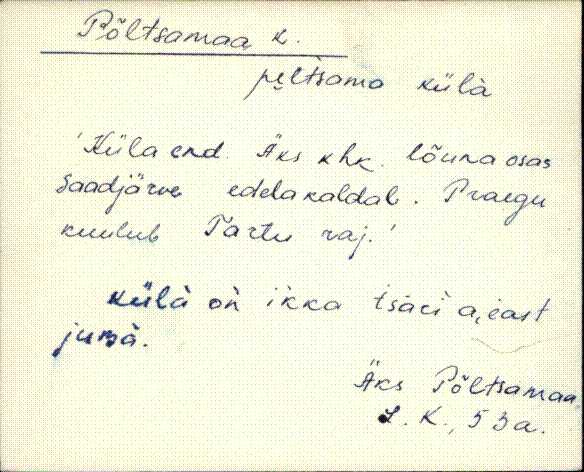 Põltsamaa k.
pe̮ltsama külà
'Küla end. Äks khk. lõuna osas
Saadjärve edelakaldal. Praegu
kuulub Tartu raj.'
külà oǹ ikka tsàri
juɜ̀à.
Äks Põltsamaa,
L. K., 53 a.